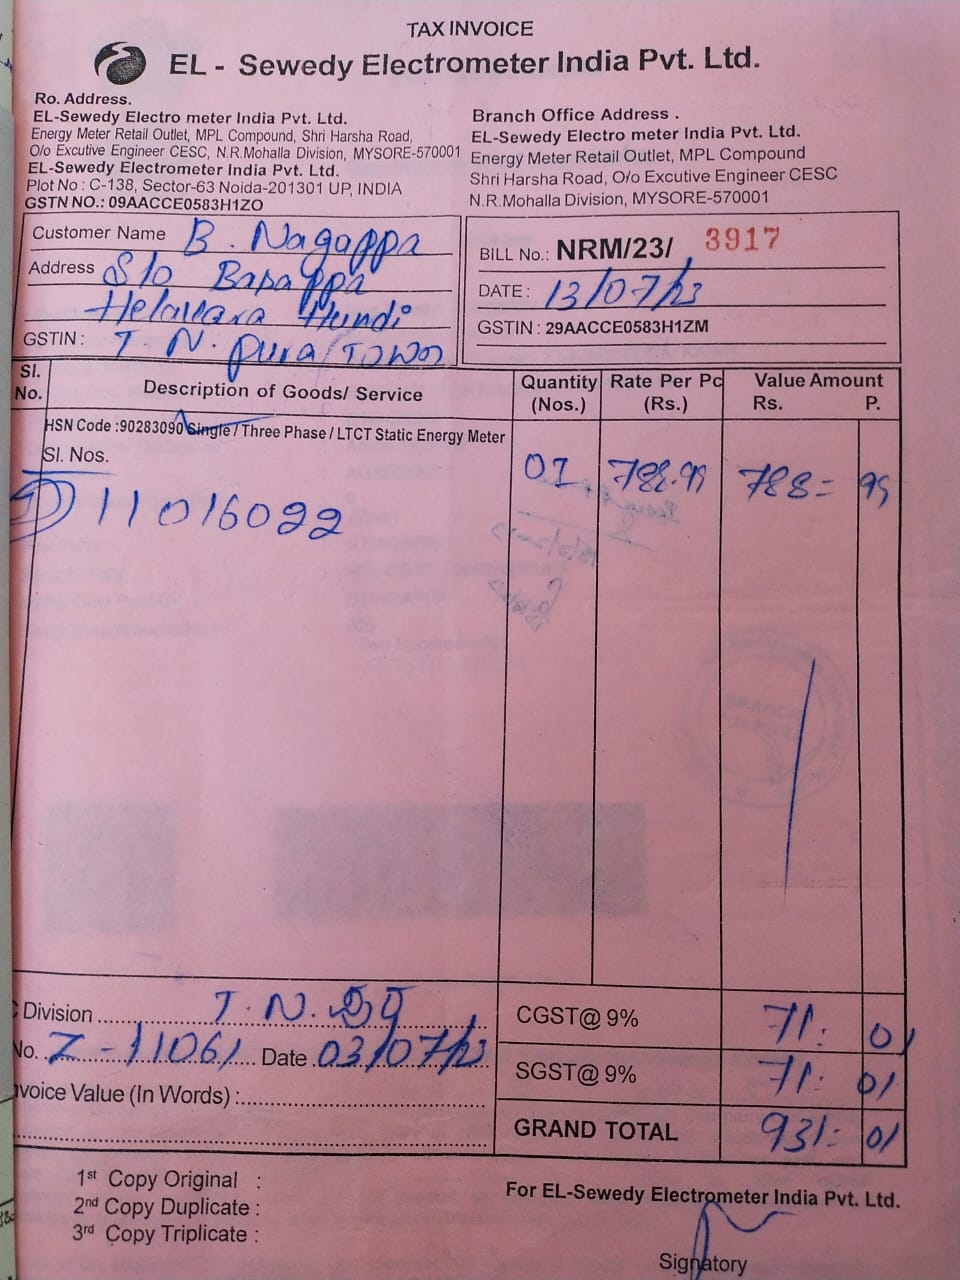 TAX INVOICE
EL - Sewedy Electrometer India Pvt. Ltd.
Ro. Address.
EL-Sewedy Electro meter India Pvt. Ltd.
Energy Meter Retail Outlet, MPL Compound, Shri Harsha Road,
O/o Excutive Engineer CESC, N.R.Mohalla Division, MYSORE-570001
EL-Sewedy Electrometer India Pvt. Ltd.
Plot No : C-138, Sector-63 Noida-201301 UP, INDIA
GSTN NO.: 09AACCE0583H1ZO
Branch Office Address .
EL-Sewedy Electro meter India Pvt. Ltd.
Energy Meter Retail Outlet, MPL Compound
Shri Harsha Road, O/o Excutive Engineer CESC
N.R.Mohalla Division, MYSORE-570001
Customer Name B. Nagappa
Address S/o Basappa
Helavara Hundi
GSTIN : T. N. pura / Town
BILL No.: NRM/23/ 3917
DATE : 13/07/23
GSTIN : 29AACCE0583H1ZM
Sl. No. Description of Goods/ Service Quantity (Nos.) Rate Per Pc (Rs.) Value Amount Rs. P.
HSN Code :90283090 Single / Three Phase / LTCT Static Energy Meter
Sl. Nos.
01 788.99 788= 99
1) 11016022
Division T. N. ಪುರ
No. Z-11061 Date 03/07/23
voice Value (In Words) :
CGST@ 9% 71: 01
SGST@ 9% 71: 01
GRAND TOTAL 931= 01
1st Copy Original :
2nd Copy Duplicate :
3rd Copy Triplicate :
For EL-Sewedy Electrometer India Pvt. Ltd.
Signatory